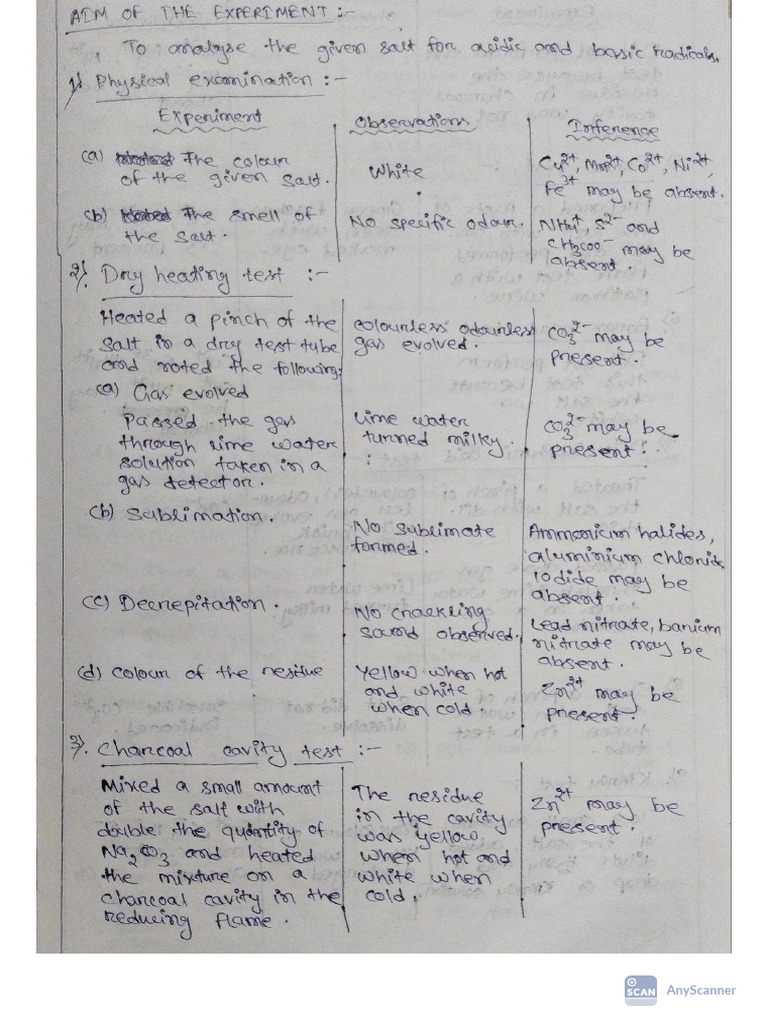 AIM OF THE EXPERIMENT :-
To analyse the given salt for acidic and basic radicals.
1) Physical examination :-
Experiment
Observations
Inference
(a) The colour of the given salt.
White
Cu2+, Mn2+, Co2+, Ni2+, Fe3+ may be absent.
(b) The smell of the salt.
No specific odour.
NH4+, S2- and CH3COO- may be absent.
2). Dry heating test :-
Heated a pinch of the
salt in a dry test tube
and noted the following:
colourless odourless
gas evolved.
CO3 2- may be
present.
(a) Gas evolved
Passed the gas
through lime water
solution taken in a
gas detector.
Lime water
turned milky.
CO3 2- may be
present.
(b) Sublimation.
No sublimate
formed.
Ammonium halides,
aluminium chloride,
iodide may be
absent.
(c) Decrepitation.
No crackling
sound observed.
Lead nitrate, barium
nitrate may be
absent.
(d) colour of the residue
Yellow when hot
and white
when cold
Zn2+ may be
present.
3). Charcoal cavity test :-
Mixed a small amount
of the salt with
double the quantity of
Na2CO3 and heated
the mixture on a
charcoal cavity in the
reducing flame.
The residue
in the cavity
was yellow
when hot and
white when
cold.
Zn2+ may be
present.
SCAN
AnyScanner